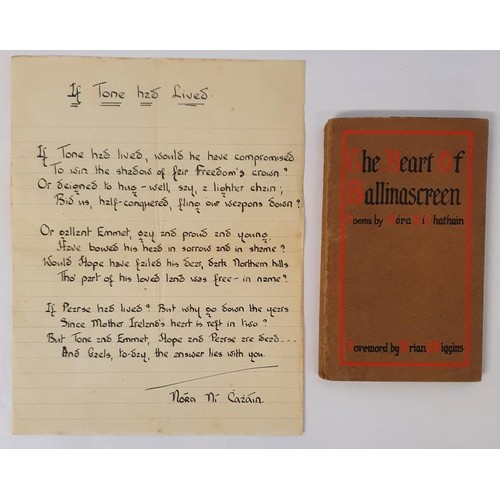 If Tone had Lived.
If Tone had lived, would he have compromised
To win the shadow of fair Freedom's crown?
Or deigned to hug – well, say, a lighter chain;
Bid us, half-conquered, fling our weapons down?
Or gallant Emmet, gay and proud and young,
Have bowed his head in sorrow and in shame?
Would Hope have failed his dear, dark Northern hills
Tho' part of his loved land was free – in name?
If Pearse had lived? But why go down the years
Since Mother Ireland's heart is reft in two?
But Tone and Emmet, Hope and Pearse are dead....
And Gaels, to-day, the answer lies with you.
Nóra Ní Caṫáin
The Heart Of
Ballinascreen
Poems by Nóra Ni Chathain
Foreword by Brian Higgins